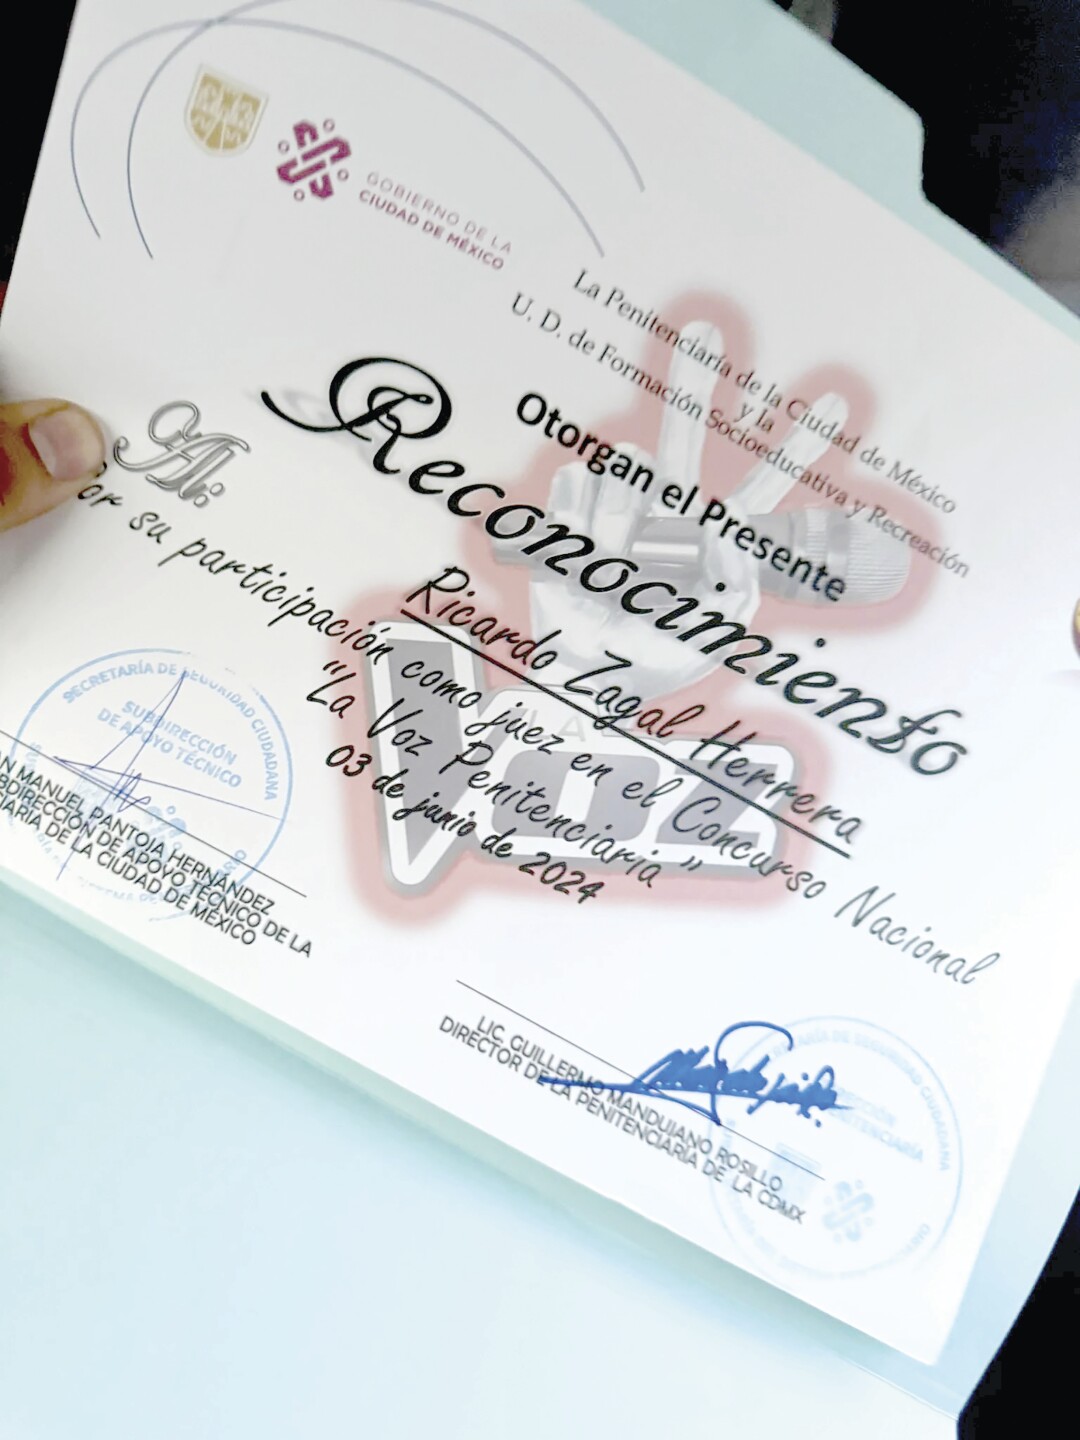 GOBIERNO DE LA
CIUDAD DE MÉXICO
La Penitenciaría de la Ciudad de México
y la
U. D. de Formación Socioeducativa y Recreación
Otorgan el Presente
Reconocimiento
Al:
Ricardo Zagal Herrera
or su participación como juez en el Concurso Nacional
"La Voz Penitenciaria"
03 de junio de 2024
LA
VOZ
SECRETARÍA DE SEGURIDAD CIUDADANA
SUBDIRECCIÓN
DE APOYO TÉCNICO
MANUEL PANTOJA HERNÁNDEZ
BDIRECCIÓN DE APOYO TÉCNICO DE LA
IARIA DE LA CIUDAD DE MÉXICO
LIC. GUILLERMO MANDUJANO ROSILLO
DIRECTOR DE LA PENITENCIARÍA DE LA CDMX
SEGURIDAD CIUDADANA